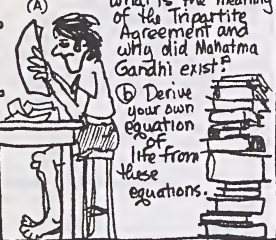 (A)
what is the meaning
of the Tripartite
Agreement and
why did Mahatma
Gandhi exist?
(b) Derive
your own
equation
of
life from
these
equations.